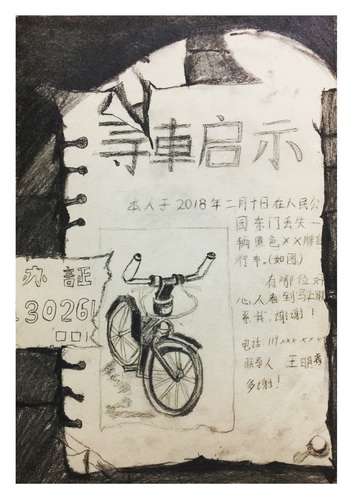 寻車启示
本人于2018年二月十日在人民公
园东门丢失一
辆黑色××牌自
行车。(如图)
有哪位好
心人看到马上联
系我,谢谢!
电话:111xxxxxx
联系人 王明
多谢!
办 證
.30261
□□1